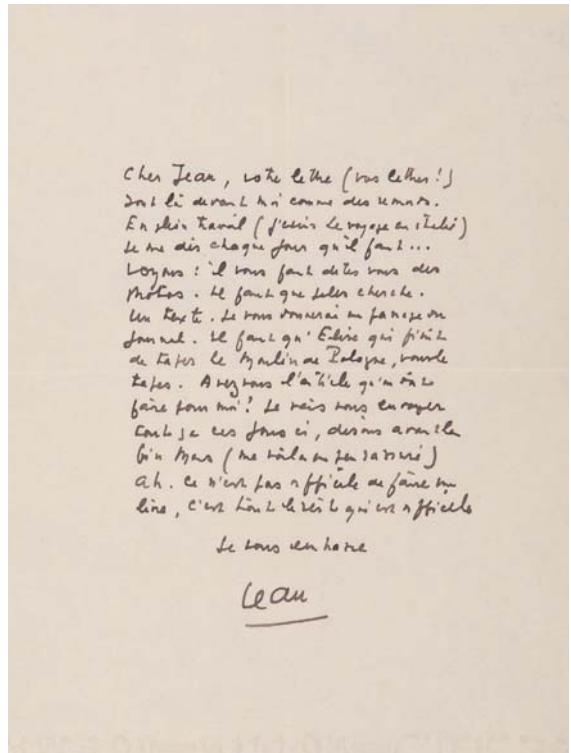 Cher Jean, votre lettre (vos lettres!)
sont là devant moi comme des remords.
En plein travail (j'écris le voyage en Italie)
Je me dis chaque jour qu'il faut...
Voyons : il vous faut dites vous des
photos. Il faut que je les cherche.
Un texte. Je vous donnerai un passage du
Journal. Il faut qu'Elise qui finit
de taper le Moulin de Pologne, vous le
tape. Avez vous l'article qu'on
faire pour moi? Je vais vous envoyer
tout ça ces jours ci, disons avant la
fin Mars (me voilà un peu rassuré)
Ah. Ce n'est pas difficile de faire un
livre, c'est tout le reste qui est difficile
Je vous embrasse
Jean